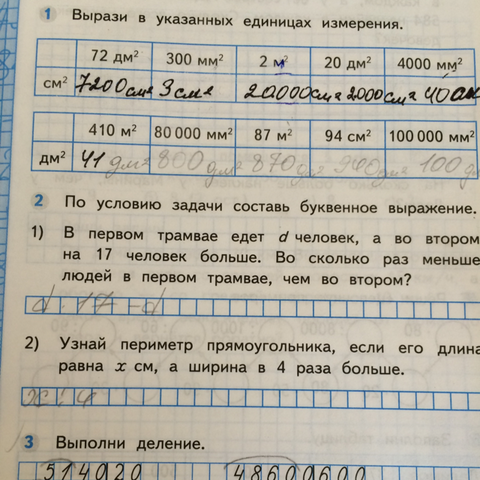 1 Вырази в указанных единицах измерения.
72 дм² 300 мм² 2 м² 20 дм² 4000 мм²
см² 7200см² 3см² 20000см² 2000см² 40
410 м² 80 000 мм² 87 м² 94 см² 100 000 мм²
дм² 41 дм² 800 дм² 870 940 дм² 100
2 По условию задачи составь буквенное выражение.
1) В первом трамвае едет d человек, а во втором
на 17 человек больше. Во сколько раз меньше
людей в первом трамвае, чем во втором?
d : 17 - d
2) Узнай периметр прямоугольника, если его длина
равна x см, а ширина в 4 раза больше.
x : 4
3 Выполни деление.
514020 48600600